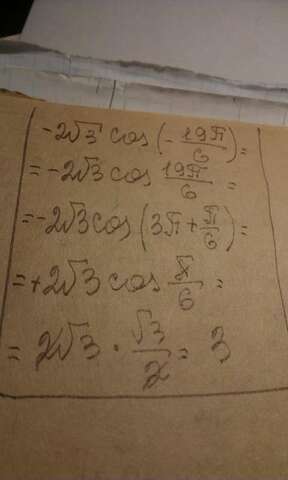 -2√3 cos (-19π/6) =
= -2√3 cos 19π/6 =
= -2√3 cos (3π + π/6) =
= +2√3 cos π/6 =
= 2√3 · √3/2 = 3